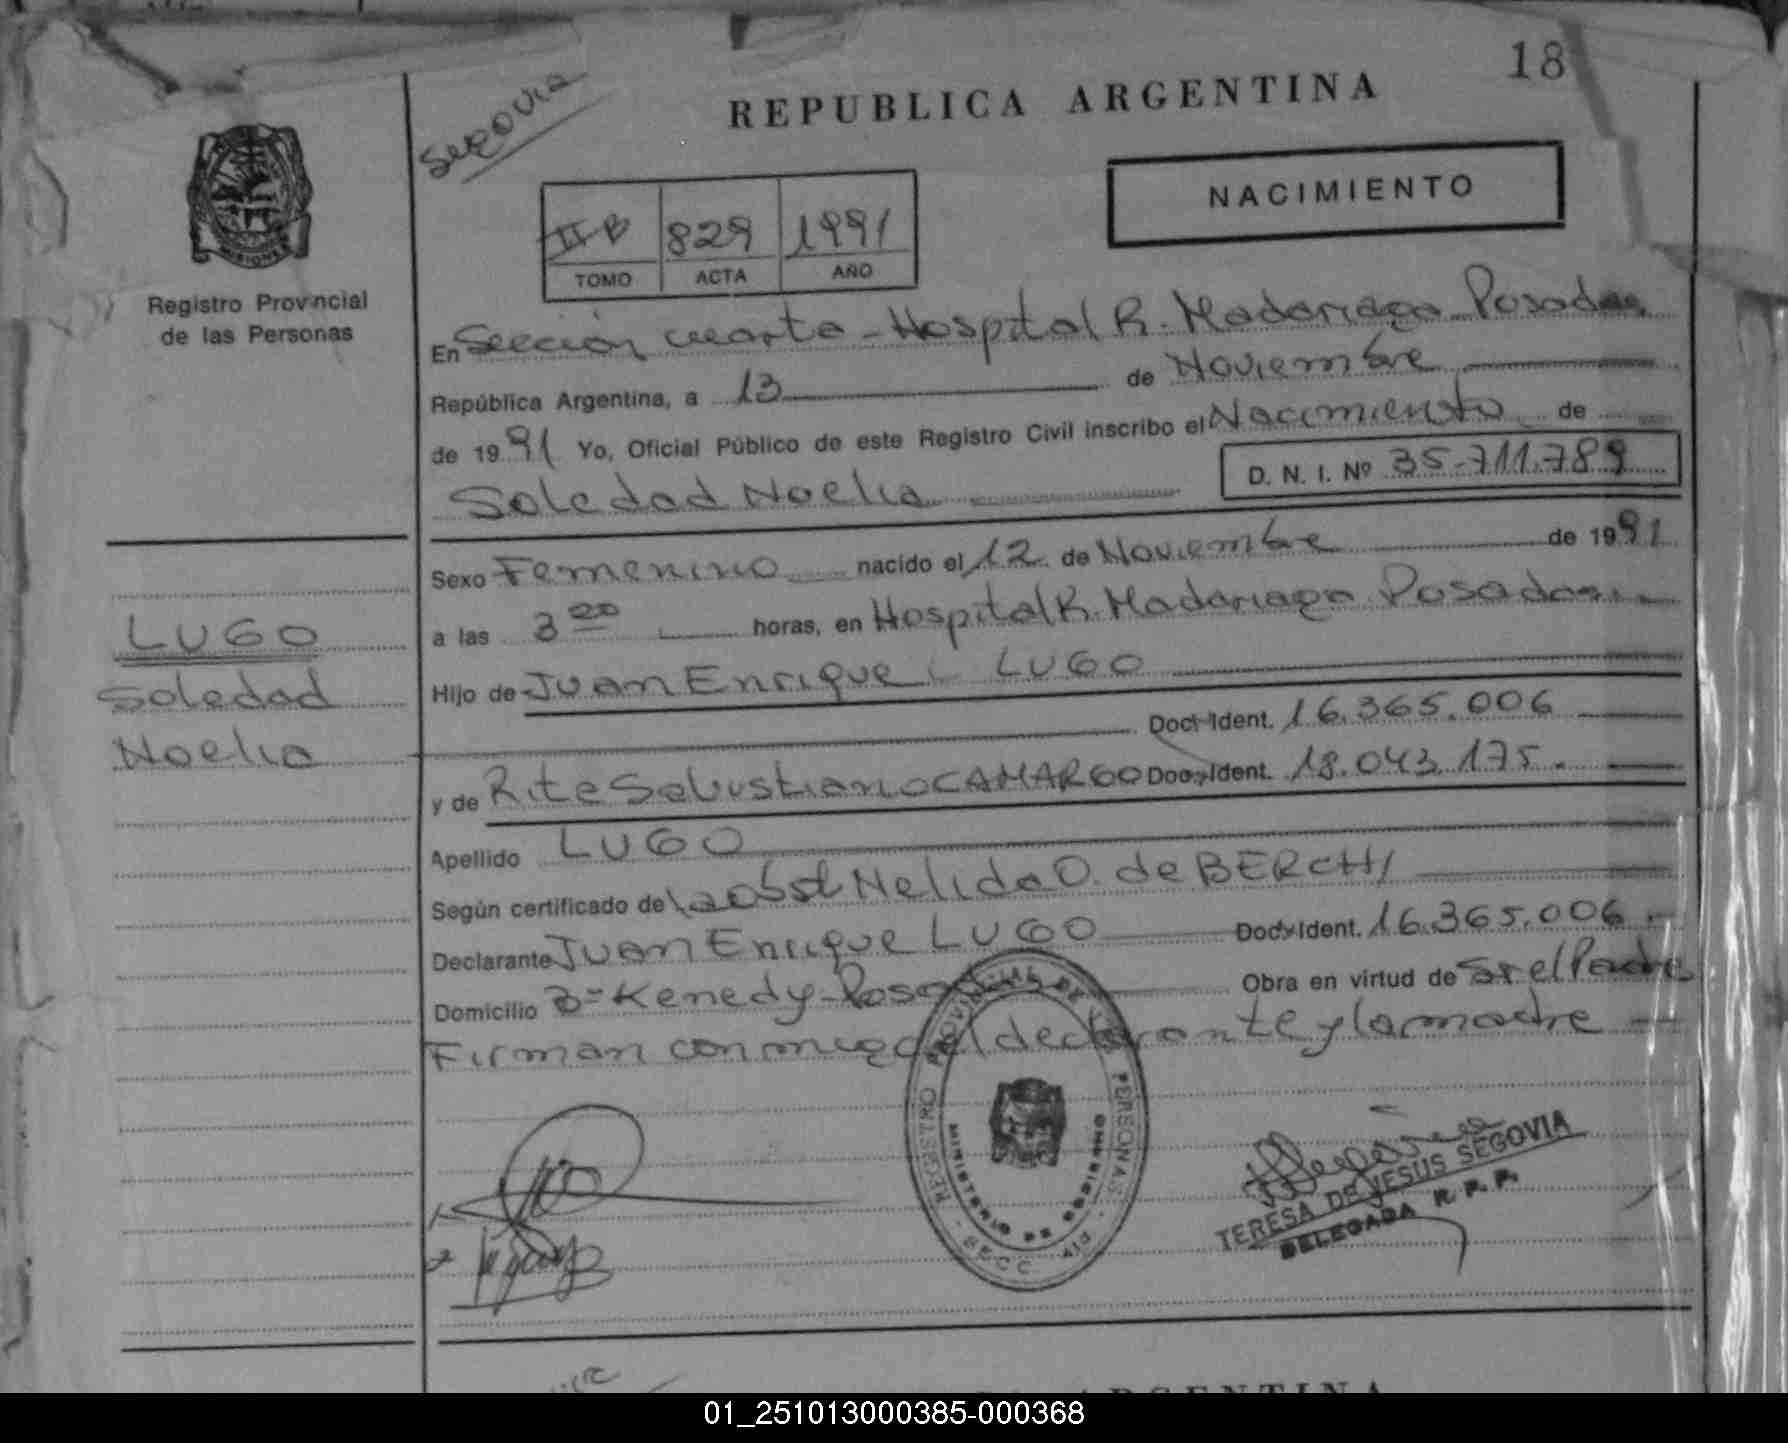 18
SEGOVIA
REPUBLICA ARGENTINA
NACIMIENTO
II B 829 1991
TOMO ACTA AÑO
MISIONES
Registro Provincial
de las Personas
En Sección cuarta - Hospital R. Madariaga Posadas
República Argentina, a 13 de Noviembre
de 1991 Yo, Oficial Público de este Registro Civil inscribo el Nacimiento de
Soledad Noelia D. N. I. Nº 35.711.789
Sexo Femenino nacido el 12 de Noviembre de 1991
a las 3 20 horas, en Hospital R. Madariaga Posadas
Hijo de Juan Enrique LUGO
Doc. Ident. 16.365.006
y de Rita Sebastiana CAMARGO Doc. Ident. 18.043.175.
Apellido LUGO
Según certificado de la obst Nelida O. de BERCHI
Declarante Juan Enrique LUGO Doc. Ident. 16.365.006
Domicilio Bº Kenedy - Posadas Obra en virtud de Ser el Padre
Firman conmigo el declarante y la madre
LUGO
Soledad
Noelia
REGISTRO PROVINCIAL DE LAS PERSONAS
MINISTERIO DE GOBIERNO
TERESA DE JESUS SEGOVIA
DELEGADA R. P. P.
ARGENTINA
01_251013000385-000368